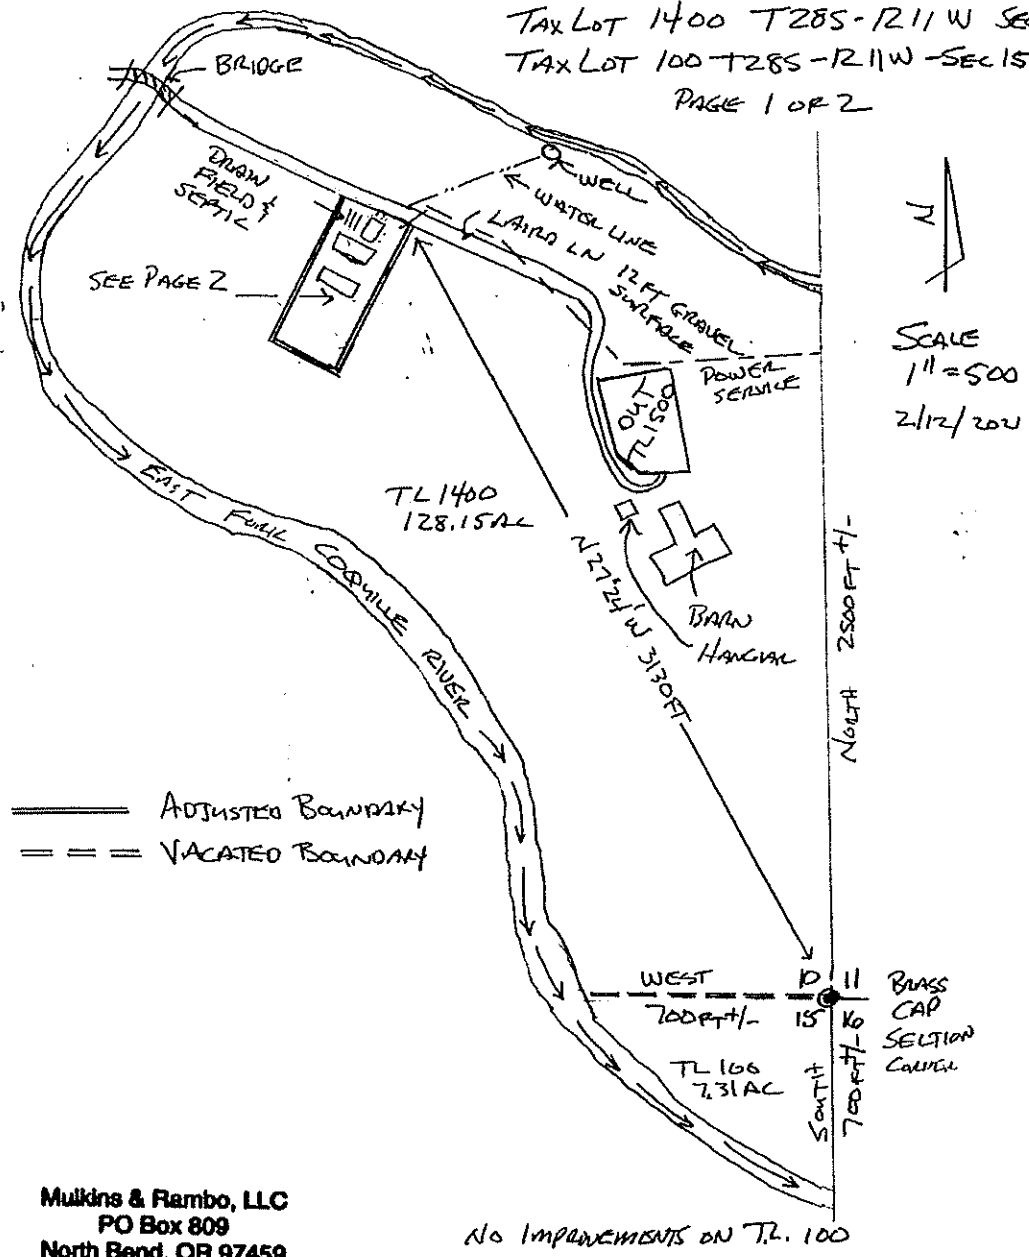 TAX LOT 1400 T28S-R11W SEC
TAX LOT 100-T28S-R11W-SEC 15
PAGE 1 OF 2
BRIDGE
DRAIN
FIELD &
SEPTIC
WELL
WATER LINE
LAIRD LN 12FT GRAVEL
SURFACE
N
SEE PAGE 2
SCALE
1"=500
2/12/2021
POWER
SERVICE
OUT
TL1500
TL 1400
128.15AC
EAST FORK COQUILLE RIVER
N27°24'W 3130FT
BARN
HANGAR
NORTH 2500FT +/-
ADJUSTED BOUNDARY
VACATED BOUNDARY
WEST
700FT+/-
10 11
15 16
BRASS
CAP
SECTION
CORNER
TL 100
7.31AC
SOUTH
700FT +/-
Mulkins & Rambo, LLC
PO Box 809
North Bend, OR 97459
NO IMPROVEMENTS ON T.L. 100